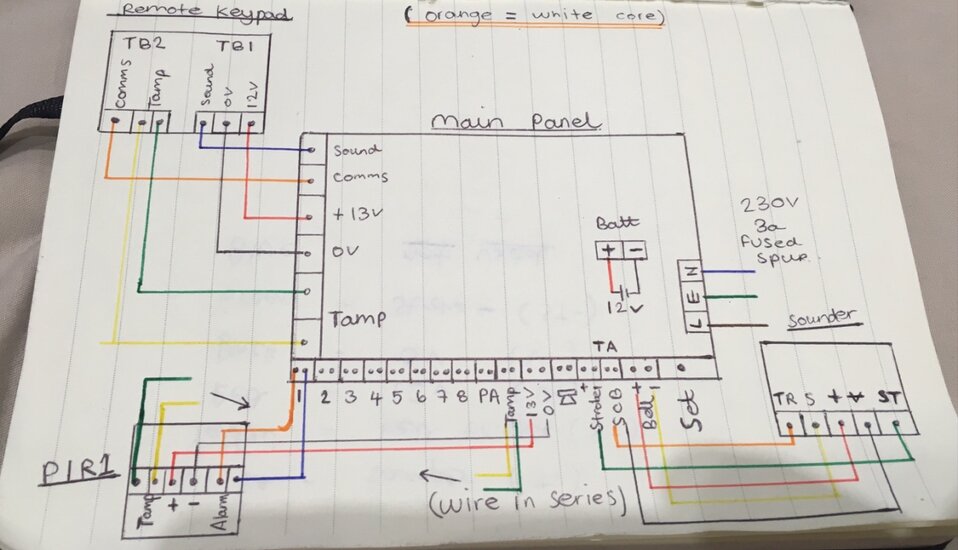 Remote Keypad
(orange = white core)
TB2 TB1
Comms Tamp Sound 0V 12V
Main Panel
Sound
Comms
+ 13V
0V
Tamp
Batt
+ -
12V
230V
3a
Fused
Spur
N
E
L
Sounder
TR S + ST
TA
1 2 3 4 5 6 7 8 PA Tamp 13V 0V + Strobe SCB Bell + - Set
PIR1
Tamp + - Alarm
(wire in series)